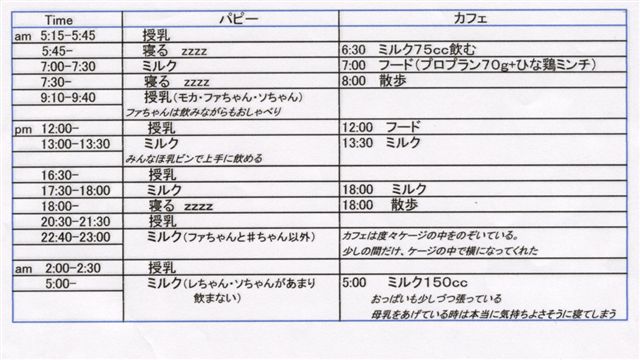 Time パピー カフェ
am 5:15-5:45 授乳
5:45- 寝る zzzz 6:30 ミルク75cc飲む
7:00-7:30 ミルク 7:00 フード(プロプラン70g+ひな鶏ミンチ)
7:30- 寝る zzzz 8:00 散歩
9:10-9:40 授乳(モカ・ファちゃん・ソちゃん)
ファちゃんは飲みながらもおしゃべり
pm 12:00- 授乳 12:00 フード
13:00-13:30 ミルク 13:30 ミルク
みんなほ乳ビンで上手に飲める
16:30- 授乳
17:30-18:00 ミルク 18:00 ミルク
18:00- 寝る zzzz 18:00 散歩
20:30-21:30 授乳
22:40-23:00 ミルク(ファちゃんと♯ちゃん以外) カフェは度々ケージの中をのぞいている。
少しの間だけ、ケージの中で横になってくれた
am 2:00-2:30 授乳
5:00- ミルク(レちゃん・ソちゃんがあまり 5:00 ミルク150cc
飲まない) おっぱいも少しづつ張っている
母乳をあげている時は本当に気持ちよさそうに寝てしまう